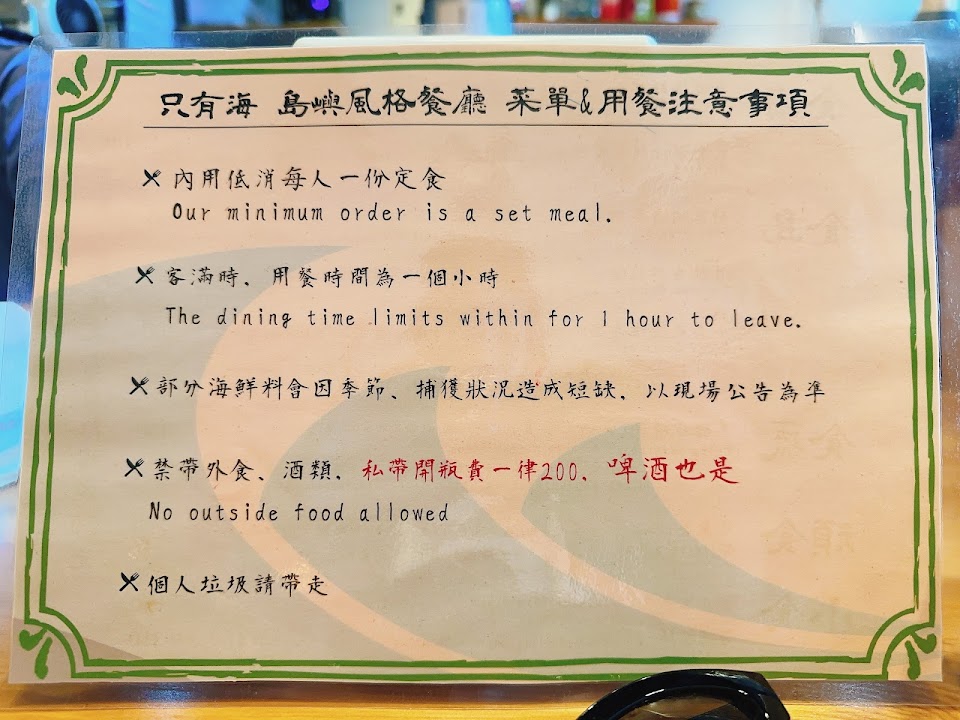 只有海 島嶼風格餐廳 菜單&用餐注意事項
內用低消每人一份定食
Our minimum order is a set meal.
客滿時、用餐時間為一個小時
The dining time limits within for 1 hour to leave.
部分海鮮料會因季節、捕獲狀況造成短缺、以現場公告為準
禁帶外食、酒類、私帶開瓶費一律200、啤酒也是
No outside food allowed
個人垃圾請帶走